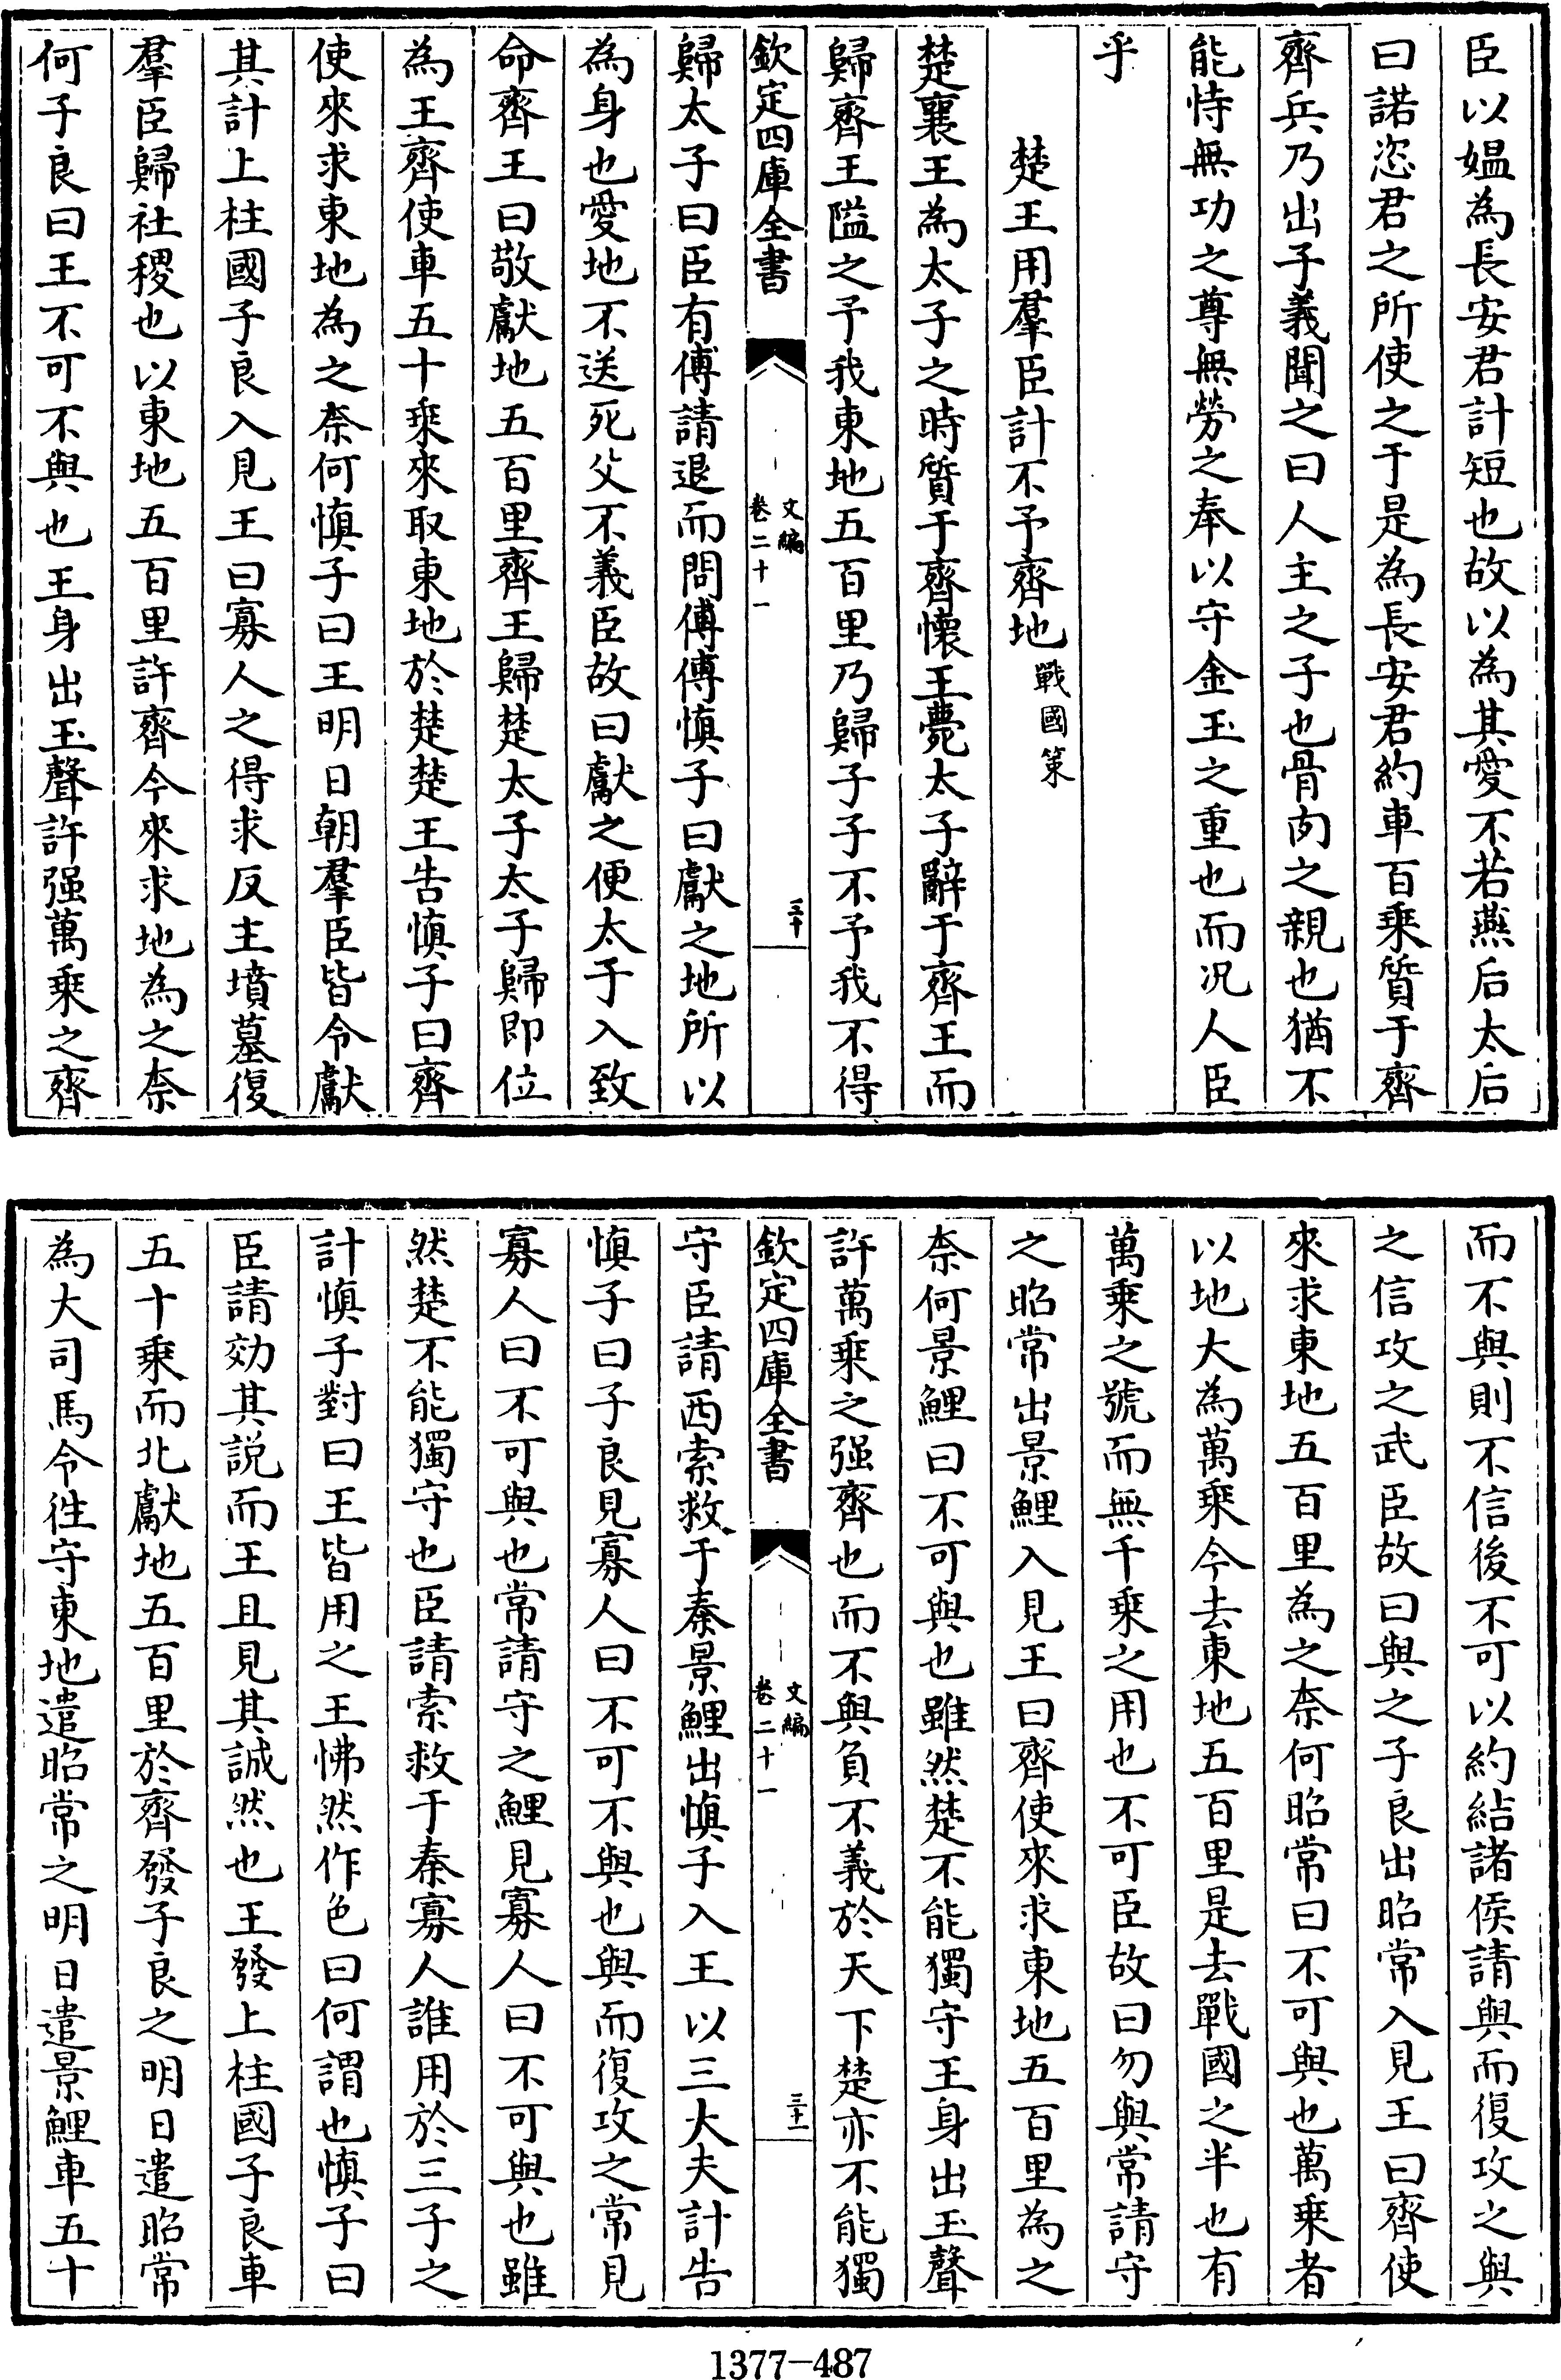 臣以媼為長安君計短也故以為其愛不若燕后太后
曰諾恣君之所使之于是為長安君約車百乘質于齊
齊兵乃出子義聞之曰人主之子也骨肉之親也猶不
能恃無功之尊無勞之奉以守金玉之重也而况人臣
乎
楚王用羣臣計不予齊地戰國策
楚襄王為太子之時質于齊懷王薨太子辭于齊王而
歸齊王隘之予我東地五百里乃歸子子不予我不得
欽定四庫全書
文編
卷二十一
三十
歸太子曰臣有傅請退而問傅傅慎子曰獻之地所以
為身也愛地不送死父不義臣故曰獻之便太子入致
命齊王曰敬獻地五百里齊王歸楚太子太子歸即位
為王齊使車五十乘來取東地於楚楚王告慎子曰齊
使來求東地為之奈何慎子曰王明日朝羣臣皆令獻
其計上柱國子良入見王曰寡人之得求反主墳墓復
羣臣歸社稷也以東地五百里許齊今來求地為之奈
何子良曰王不可不與也王身出玉聲許强萬乘之齊
而不與則不信後不可以約結諸侯請與而復攻之與
之信攻之武臣故曰與之子良出昭常入見王曰齊使
來求東地五百里為之奈何昭常曰不可與也萬乘者
以地大為萬乘今去東地五百里是去戰國之半也有
萬乘之號而無千乘之用也不可臣故曰勿與常請守
之昭常出景鯉入見王曰齊使來求東地五百里為之
奈何景鯉曰不可與也雖然楚不能獨守王身出玉聲
許萬乘之强齊也而不與負不義於天下楚亦不能獨
欽定四庫全書
文編
卷二十一
三十一
守臣請西索救于秦景鯉出慎子入王以三大夫計告
慎子曰子良見寡人曰不可不與也與而復攻之常見
寡人曰不可與也常請守之鯉見寡人曰不可與也雖
然楚不能獨守也臣請索救于秦寡人誰用於三子之
計慎子對曰王皆用之王怫然作色曰何謂也慎子曰
臣請効其説而王且見其誠然也王發上柱國子良車
五十乘而北獻地五百里於齊發子良之明日遣昭常
為大司馬令往守東地遣昭常之明日遣景鯉車五十
1377-487